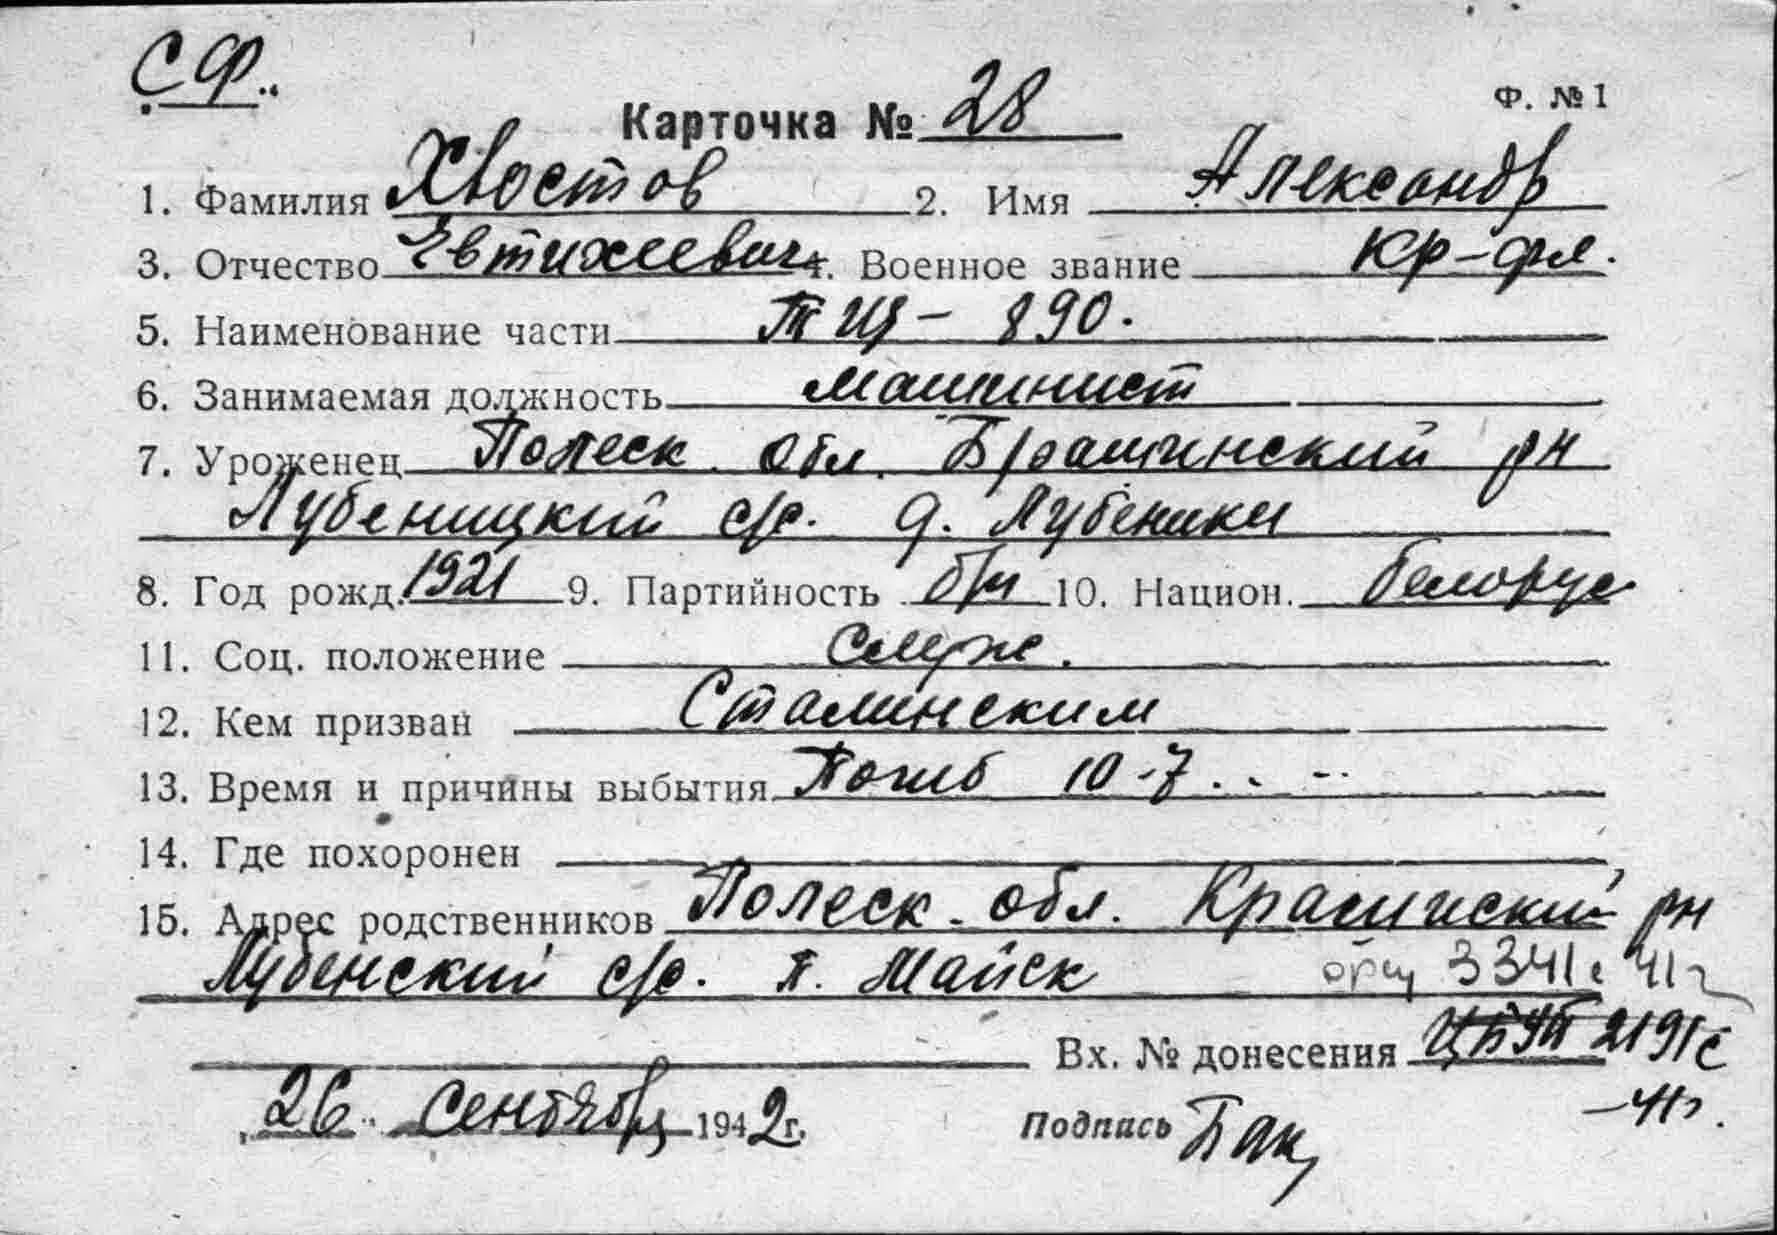 СФ.
Ф. №1
Карточка № 28
1. Фамилия Хвостов 2. Имя Александр
3. Отчество Евтихеевич 4. Военное звание кр-фл.
5. Наименование части ТЩ- 890.
6. Занимаемая должность машинист
7. Уроженец Полеск. обл. Брагинский рн
Лубеницкий с/с. д. Лубеники
8. Год рожд. 1921 9. Партийность б/п 10. Национ. белорус
11. Соц. положение служ.
12. Кем призван Сталинским
13. Время и причины выбытия Погиб 10-7.
14. Где похоронен
15. Адрес родственников Полеск. обл. рн
Лубенский с/с. п. Майск 3341с 41г
Вх. № донесения 2191с
26 сентября 1942г. Подпись
-41г.